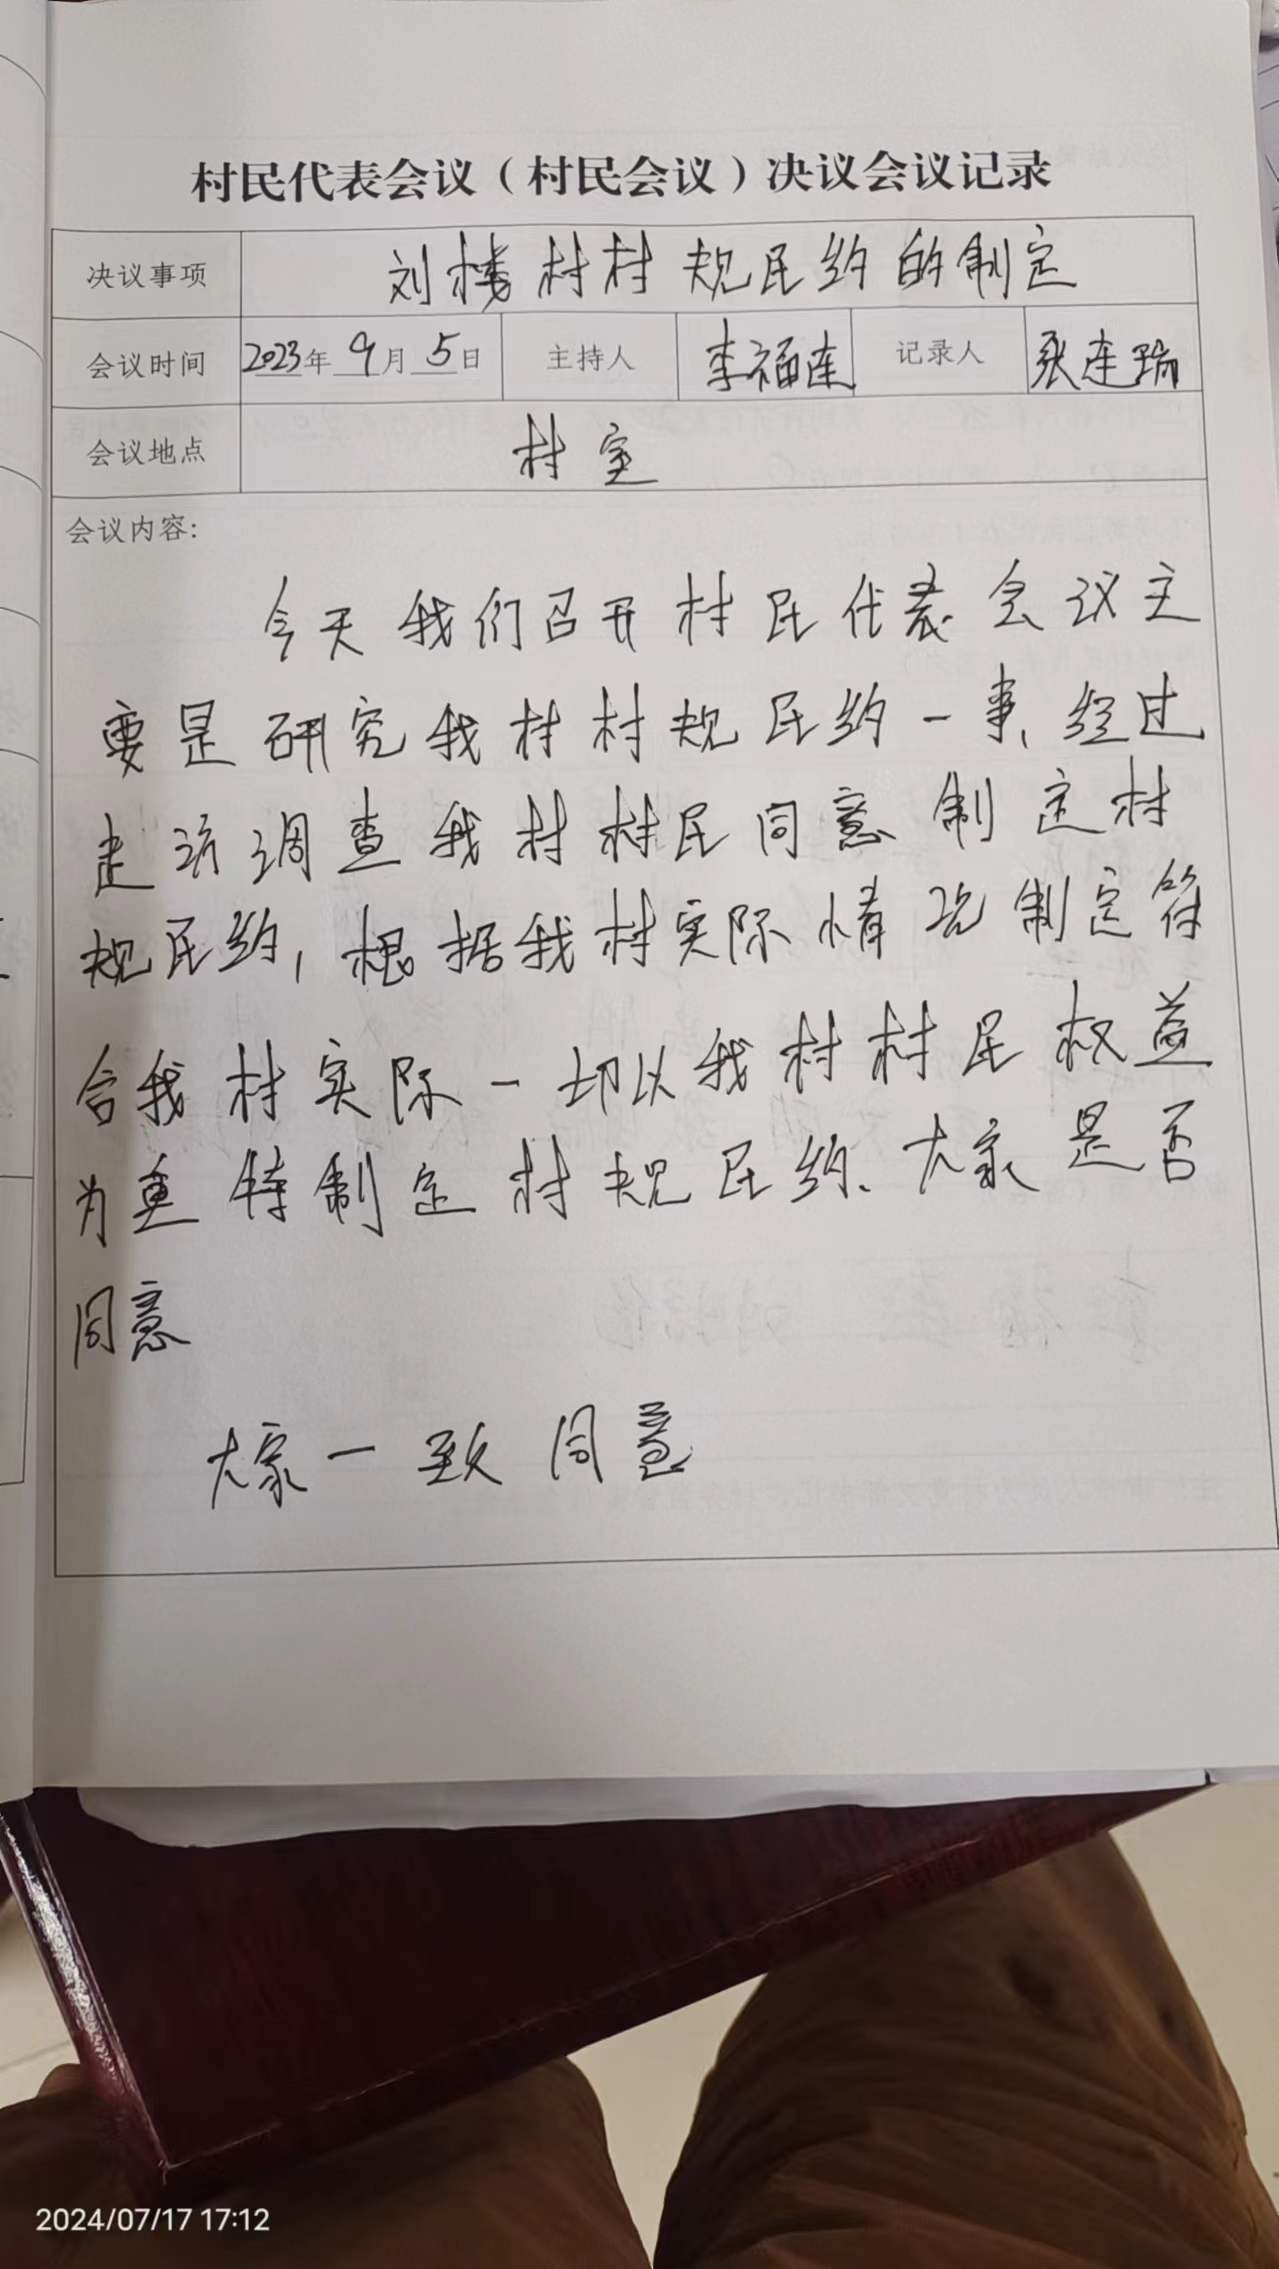 村民代表会议（村民会议）决议会议记录
决议事项 刘楼村村规民约的制定
会议时间 2023年 9月 5日 主持人 李福连 记录人 张连瑞
会议地点 村室
会议内容:
今天我们召开村民代表会议主
要是研究我村村规民约一事、经过
走访调查我村村民同意制定村
规民约, 根据我村实际情况制定符
合我村实际一切以我村村民权益
为重特制定村规民约、大家是否
同意
大家一致同意
2024/07/17 17:12